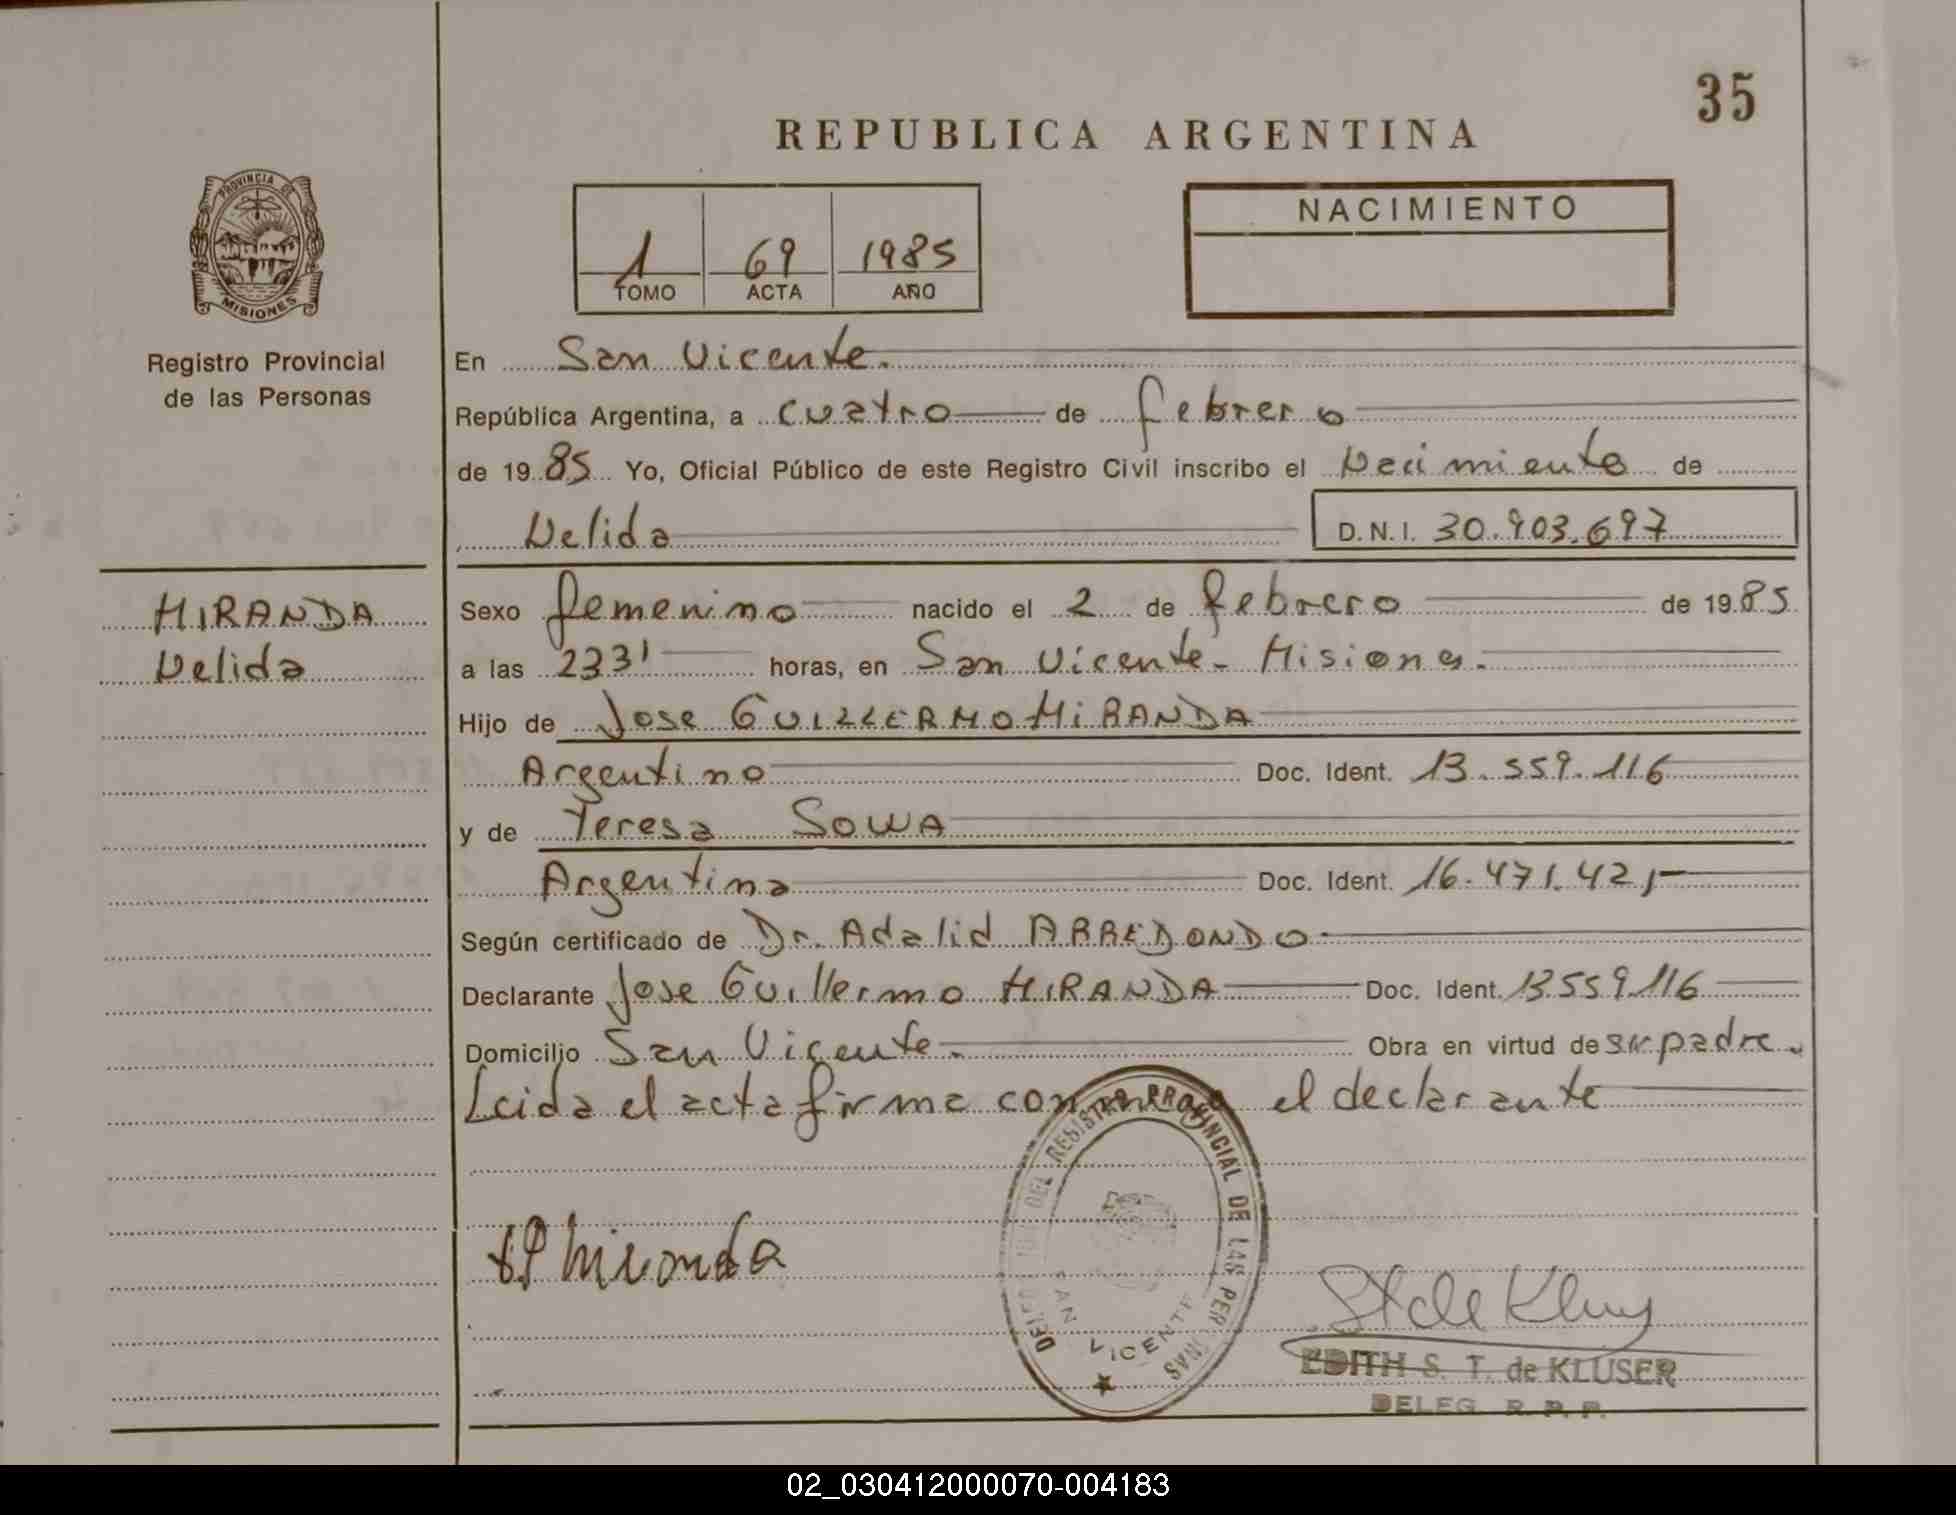 35
REPUBLICA ARGENTINA
PROVINCIA DE
MISIONES
Registro Provincial
de las Personas
1 69 1985
TOMO ACTA AÑO
NACIMIENTO
En San Vicente.
República Argentina, a cuatro de febrero
de 1985 Yo, Oficial Público de este Registro Civil inscribo el Nacimiento de
Nelida D.N.I. 30.903.697
MIRANDA
Nelida
Sexo femenino nacido el 2 de febrero de 1985
a las 2331 horas, en San Vicente - Misiones.
Hijo de Jose GUILLERMO MIRANDA
Argentino Doc. Ident. 13.559.116
y de Teresa SOWA
Argentina Doc. Ident. 16.471.421-
Según certificado de Dr. Adalid ARREDONDO.
Declarante Jose Guillermo MIRANDA Doc. Ident. 13.559.116
Domicilio San Vicente. Obra en virtud de su padre.
Leida el acta firma conmigo el declarante
DEL REGISTRO PROVINCIAL DE LAS PERSONAS
SAN VICENTE
Miranda
EDITH S. T. de KLUSER
DELEG. R. P. P.
02_030412000070-004183